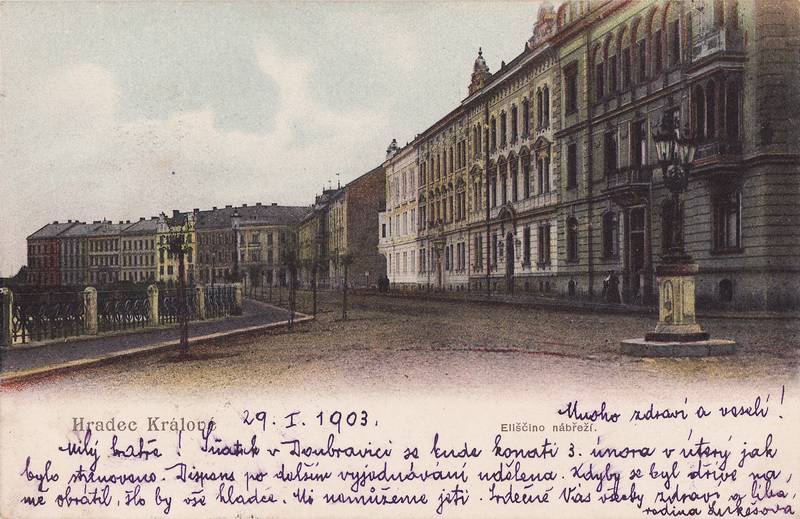 Hradec Králové 29. I. 1903.
Mnoho zdraví a veselí!
Eliščino nábřeží.
Milý bratře! Sňatek v Doubravici se bude konati 3. února v úterý jak
bylo stanoveno. Dispens po delším vyjednávání udělena. Kdyby se byl dříve na
mě obrátil, šlo by vše hladce. Mi nemůžeme jeti. Srdečně Vás všechy zdraví a líbá
rodina Lukešova